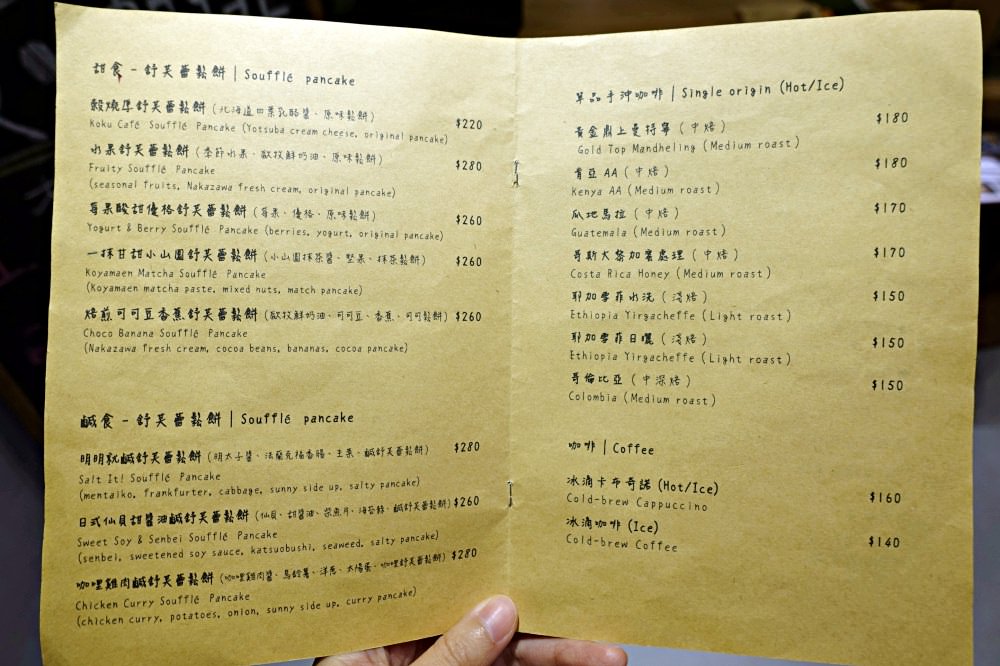 甜食 - 舒芙蕾鬆餅 | Soufflé pancake
穀燒厚舒芙蕾鬆餅 (北海道四葉乳酪醬、原味鬆餅)
Koku Café Soufflé Pancake (Yotsuba cream cheese, original pancake) $220
水果舒芙蕾鬆餅 (季節水果、歐牧鮮奶油、原味鬆餅)
Fruity Soufflé Pancake $280
(seasonal fruits, Nakazawa fresh cream, original pancake)
莓果酸甜優格舒芙蕾鬆餅 (莓果、優格、原味鬆餅)
Yogurt & Berry Soufflé Pancake (berries, yogurt, original pancake) $260
一抹甘甜小山園舒芙蕾鬆餅 (小山園抹茶醬、堅果、抹茶鬆餅) $260
Koyamaen Matcha Soufflé Pancake
(Koyamaen matcha paste, mixed nuts, match pancake)
焙煎可可豆香蕉舒芙蕾鬆餅 (歐牧鮮奶油、可可豆、香蕉、可可鬆餅) $260
Choco Banana Soufflé Pancake
(Nakazawa fresh cream, cocoa beans, bananas, cocoa pancake)
鹹食 - 舒芙蕾鬆餅 | Soufflé pancake
明明就鹹舒芙蕾鬆餅 (明太子醬、法蘭克福香腸、生菜、鹹舒芙蕾鬆餅) $280
Salt It! Soufflé Pancake
(mentaiko, frankfurter, cabbage, sunny side up, salty pancake)
日式仙貝甜醬油鹹舒芙蕾鬆餅 (仙貝、甜醬油、柴魚片、海苔絲、鹹舒芙蕾鬆餅) $260
Sweet Soy & Senbei Soufflé Pancake
(senbei, sweetened soy sauce, katsuobushi, seaweed, salty pancake)
咖哩雞肉鹹舒芙蕾鬆餅 (咖哩雞肉醬、馬鈴薯、洋蔥、太陽蛋、咖哩舒芙蕾鬆餅) $280
Chicken Curry Soufflé Pancake
(chicken curry, potatoes, onion, sunny side up, curry pancake)
單品手沖咖啡 | Single origin (Hot/Ice)
黃金鼎上曼特寧 (中焙) $180
Gold Top Mandheling (Medium roast)
肯亞 AA (中焙) $180
Kenya AA (Medium roast)
瓜地馬拉 (中焙) $170
Guatemala (Medium roast)
哥斯大黎加蜜處理 (中焙) $170
Costa Rica Honey (Medium roast)
耶加雪菲水洗 (淺焙) $150
Ethiopia Yirgacheffe (Light roast)
耶加雪菲日曬 (淺焙) $150
Ethiopia Yirgacheffe (Light roast)
哥倫比亞 (中深焙) $150
Colombia (Medium roast)
咖啡 | Coffee
冰滴卡布奇諾 (Hot/Ice) $160
Cold-brew Cappuccino
冰滴咖啡 (Ice) $140
Cold-brew Coffee